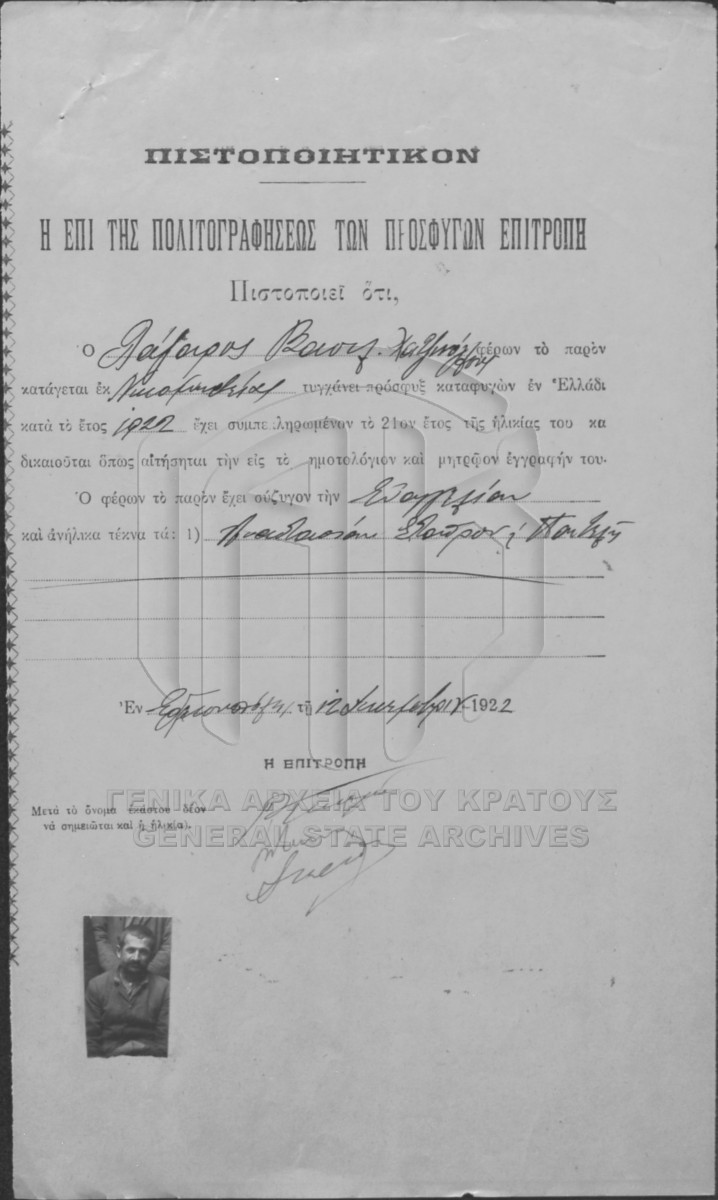 ΠΙΣΤΟΠΟΙΗΤΙΚΟΝ
Η ΕΠΙ ΤΗΣ ΠΟΛΙΤΟΓΡΑΦΗΣΕΩΣ ΤΩΝ ΠΡΟΣΦΥΓΩΝ ΕΠΙΤΡΟΠΗ
Πιστοποιεῖ ὅτι,
Ὁ Λάζαρος Βασιλ. φέρων τὸ παρὸν
κατάγεται ἐκ Νικομηδείας τυγχάνει πρόσφυξ καταφυγὼν ἐν Ἑλλάδι
κατὰ τὸ ἔτος 1922 ἔχει συμπεπληρωμένον τὸ 21ον ἔτος τῆς ἡλικίας του κα
δικαιοῦται ὅπως αἰτήσηται τὴν εἰς τὸ ημοτολόγιον καὶ μητρῷον ἐγγραφήν του.
Ὁ φέρων τὸ παρὸν ἔχει σύζυγον τὴν Εὐαγγελίαν
καὶ ἀνήλικα τέκνα τά: 1) Ἀναστασίαν Σταῦρον ἡ Παντελῆ
Ἐν Ἑρμουπόλει τῇ 12 1922
Η ΕΠΙΤΡΟΠΗ
Μετὰ τὸ ὄνομα ἑκάστου δέον
νὰ σημειῶται καὶ ἡ ἡλικία).
ΓΕΝΙΚΑ ΑΡΧΕΙΑ ΤΟΥ ΚΡΑΤΟΥΣ
GENERAL STATE ARCHIVES